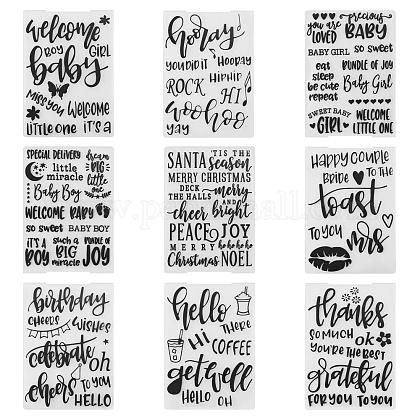 welcome
BOY GIRL
baby
MISS YOU WELCOME
LITTLE ONE IT'S A
hooray
YOU DID IT HOORAY
ROCK HIP HIP
HI
woo hoo
yay
you are precious
LOVED BABY
BABY GIRL so sweet
eat BUNDLE OF JOY
sleep Baby Girl
be cute
repeat
SWEET BABY WELCOME
GIRL LITTLE ONE
SPECIAL DELIVERY dream
little BIG
miracle little
one
Baby Boy
WELCOME BABY
so sweet BABY BOY
IT'S A such a BUNDLE OF
BOY BIG JOY
miracle
SANTA 'TIS THE
season
MERRY CHRISTMAS
DECK merry
THE HALLS and
cheer bright
PEACE JOY
MERRY ho ho ho ho
Christmas NOEL
HAPPY COUPLE
BRIDE TO THE
toast
TO YOU mrs
birthday
CHEERS WISHES
celebrate oh
cheers TO YOU
HELLO
hello
Hi THERE
COFFEE
get well
HELLO OH
thanks
SO MUCH ok
YOU'RE THE BEST
grateful
FOR YOU TO YOU